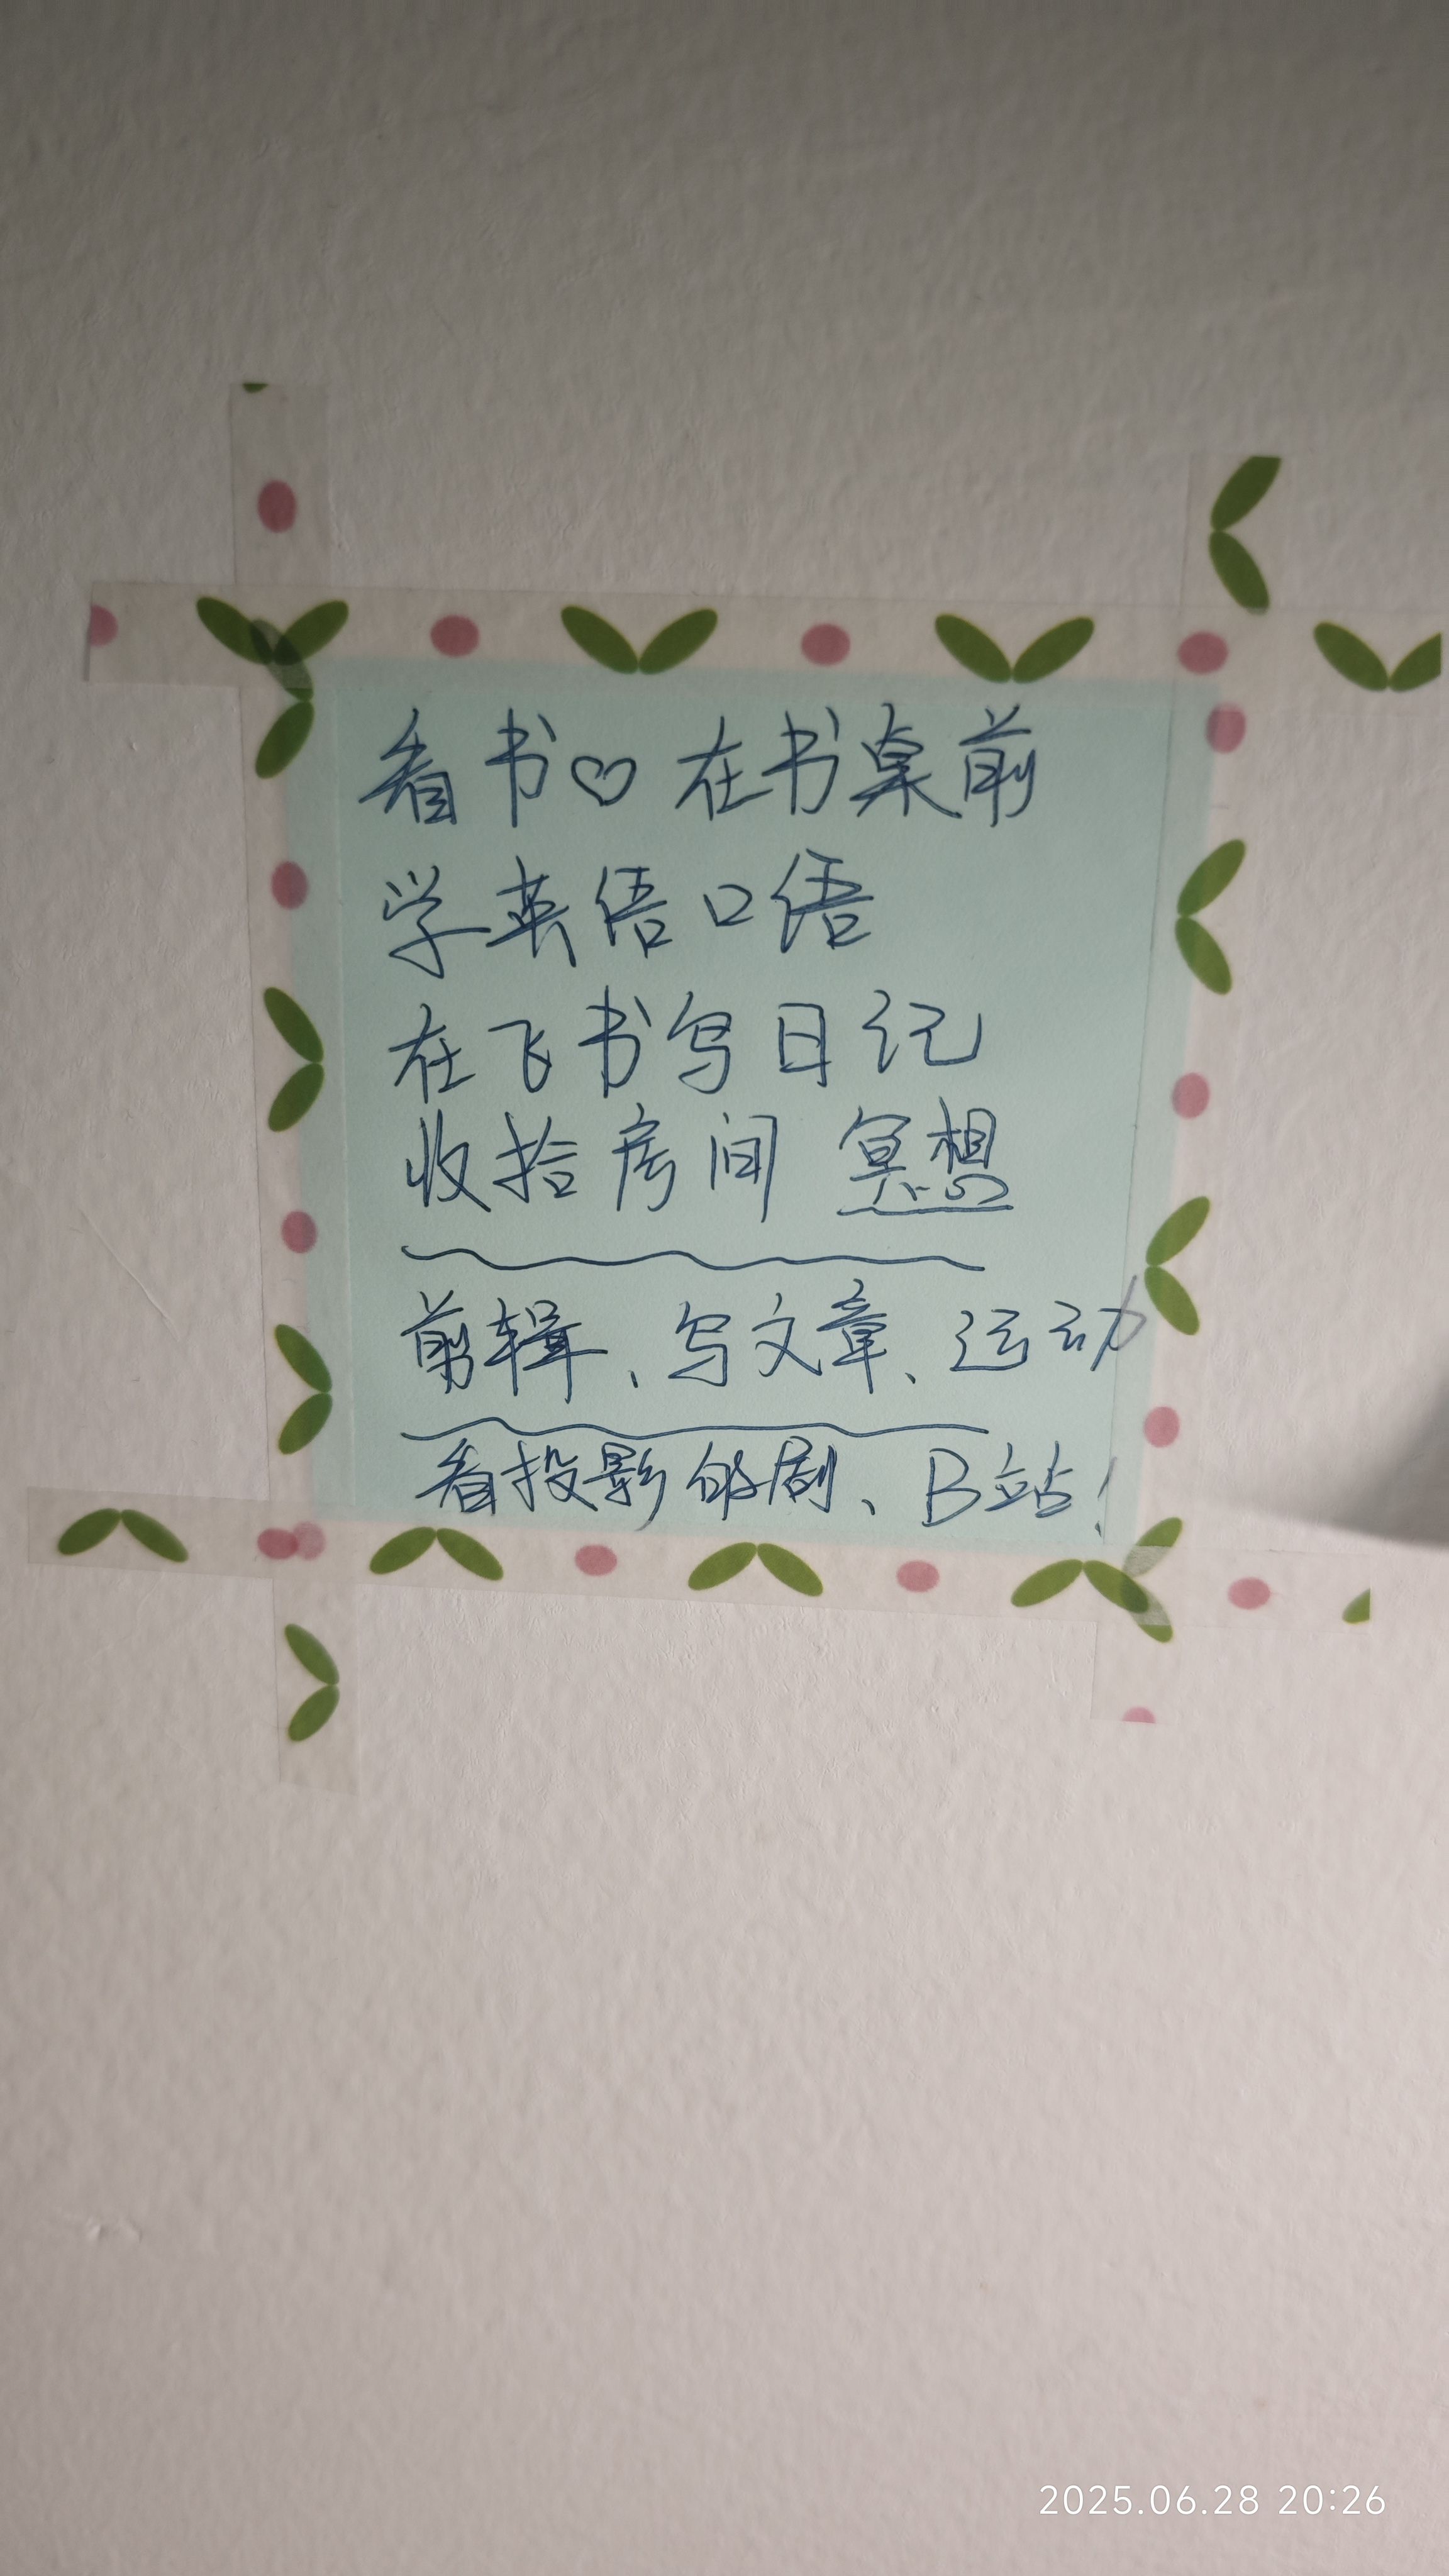 看书♡在书桌前
学英语口语
在飞书写日记
收拾房间 冥想
剪辑、写文章、运动
看投影的剧、B站！
2025.06.28 20:26